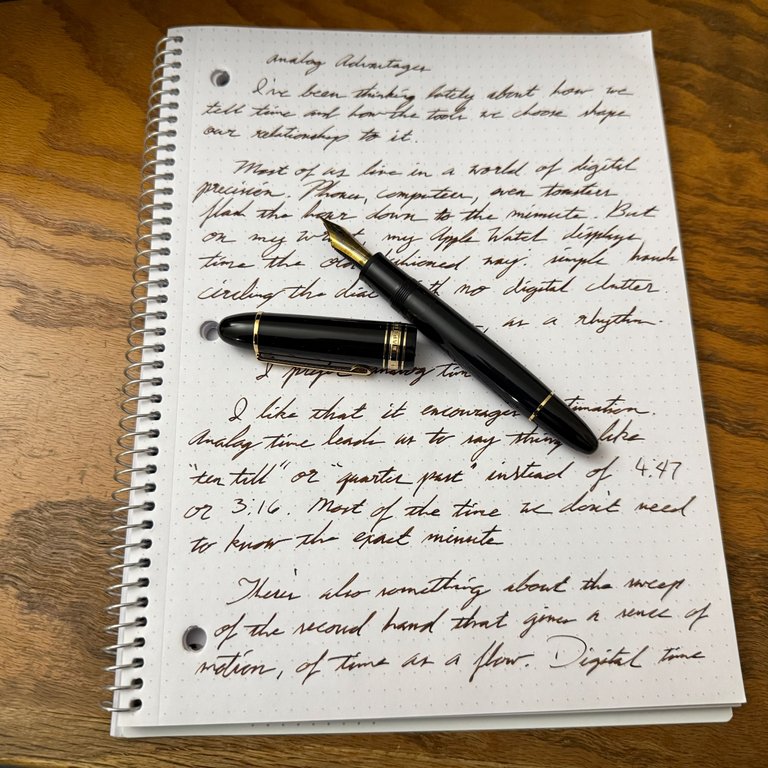 Analog Advantages
I've been thinking lately about how we
tell time and how the tools we choose shape
our relationship to it.
Most of us live in a world of digital
precision. Phones, computers, even toasters
flash the hour down to the minute. But
on my my Apple Watch displays
time the old fashioned way: simple hands
circling the dial with no digital clutter.
as a rhythm.
I prefer analog
I like that it encourages estimation.
Analog time leads us to say things like
"ten till" or "quarter past" instead of 4:47
or 3:16. Most of the time we don't need
to know the exact minute
There's also something about the sweep
of the second hand that gives a sense of
motion, of time as a flow. Digital time